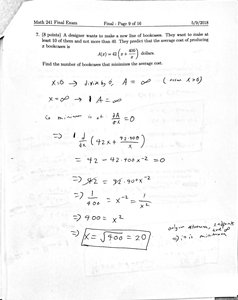 Math 241 Final Exam
Final - Page 9 of 10
5/9/2018
7. (8 points) A designer wants to make a new line of bookcases. They want to make at
least 10 of them and not more than 42. They predict that the average cost of producing
x bookcases is
42 (x + 400/x) dollars.
Find the number of bookcases that minimizes the average cost.
x=0 → d.n.e by 0, A = ∞ (x>0)
x = ∞ → A = ∞
is at dA/dx = 0
⇒ d/dx (42x + 42·400/x)
= 42 - 42·400 x⁻² = 0
⇒ 42 = 42·400 x⁻²
⇒ 1/400 = x⁻² = 1/x²
⇒ 400 = x²
⇒ x = √400 = 20
⇒ it is minimum